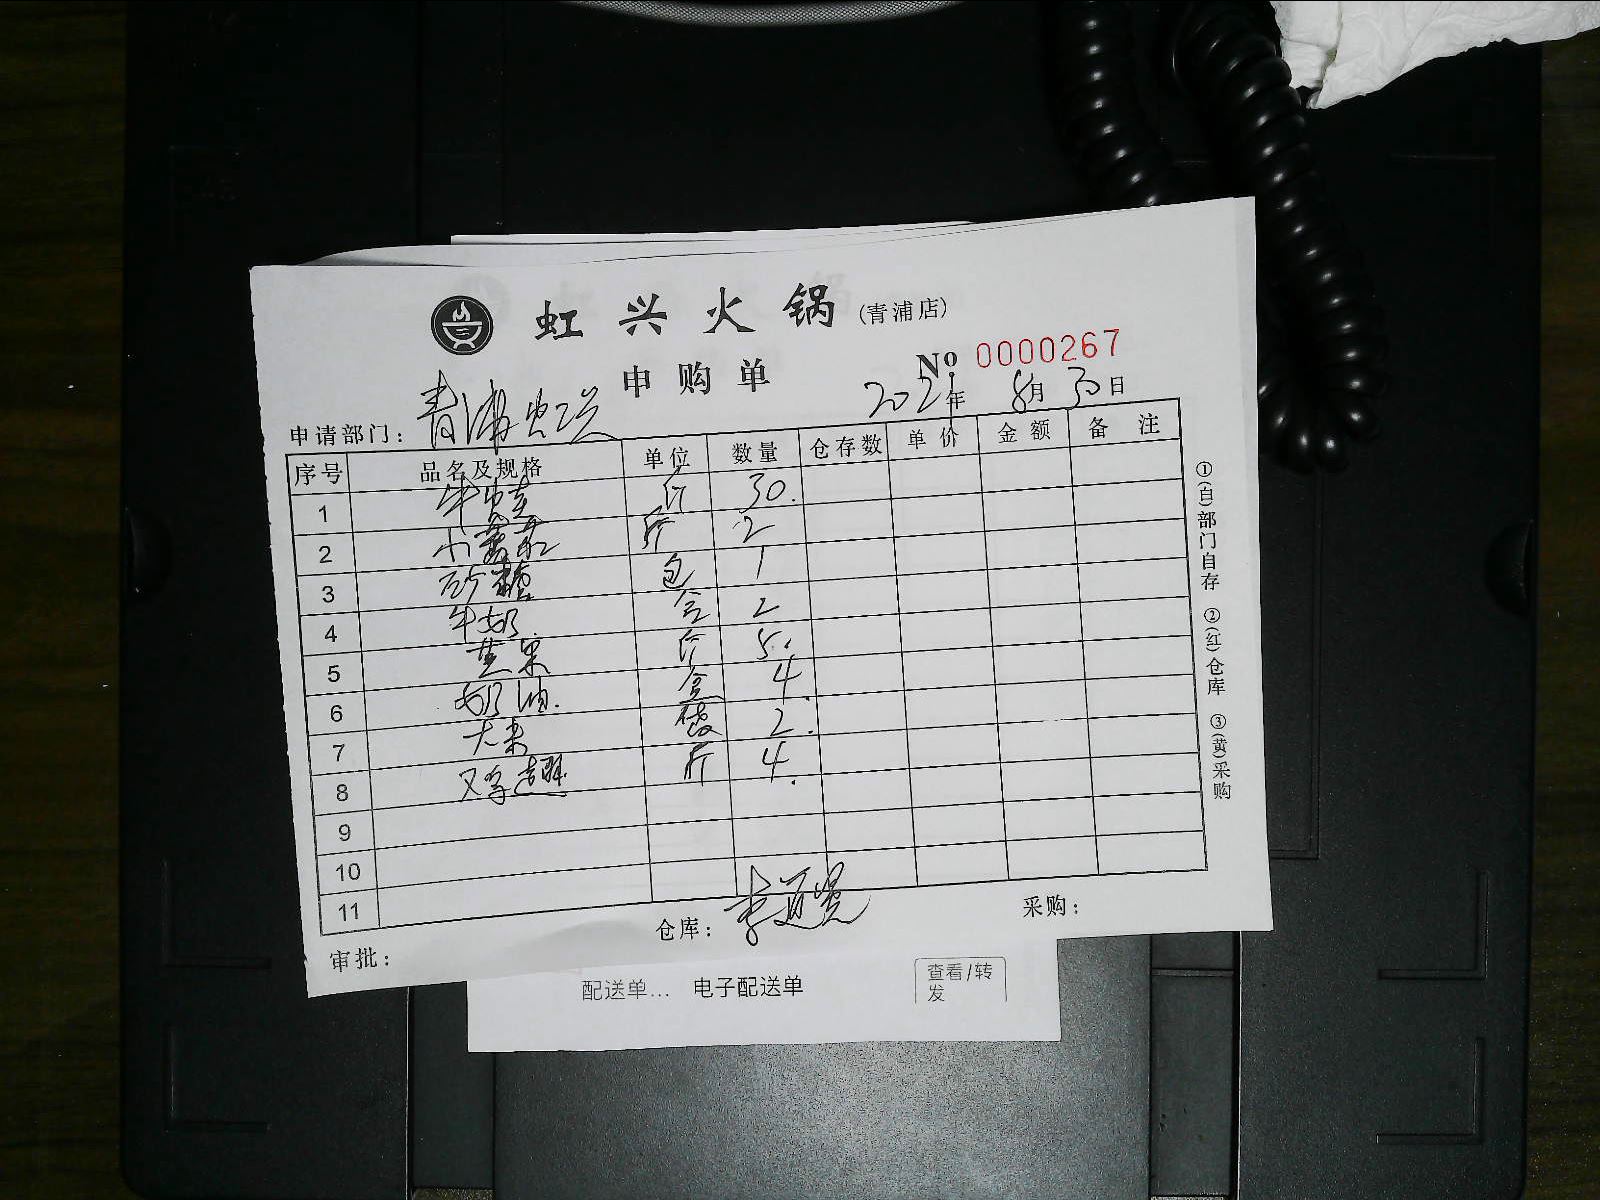 虹兴火锅(青浦店)
申购单
№ 0000267
2021年 8月 30日
申请部门: 青浦虹兴
序号 品名及规格 单位 数量 仓存数 单价 金额 备注
1 斤 30.
2 小 斤 2
3 砂糖 包 1
4 牛奶 合 2
5 芒果 斤 5.
6 奶油. 盒 4.
7 大米 袋 2.
8 斤 4.
9
10
11
审批: 仓库: 李 采购:
①(白)部门自存 ②(红)仓库 ③(黄)采购
配送单... 电子配送单 查看/转发